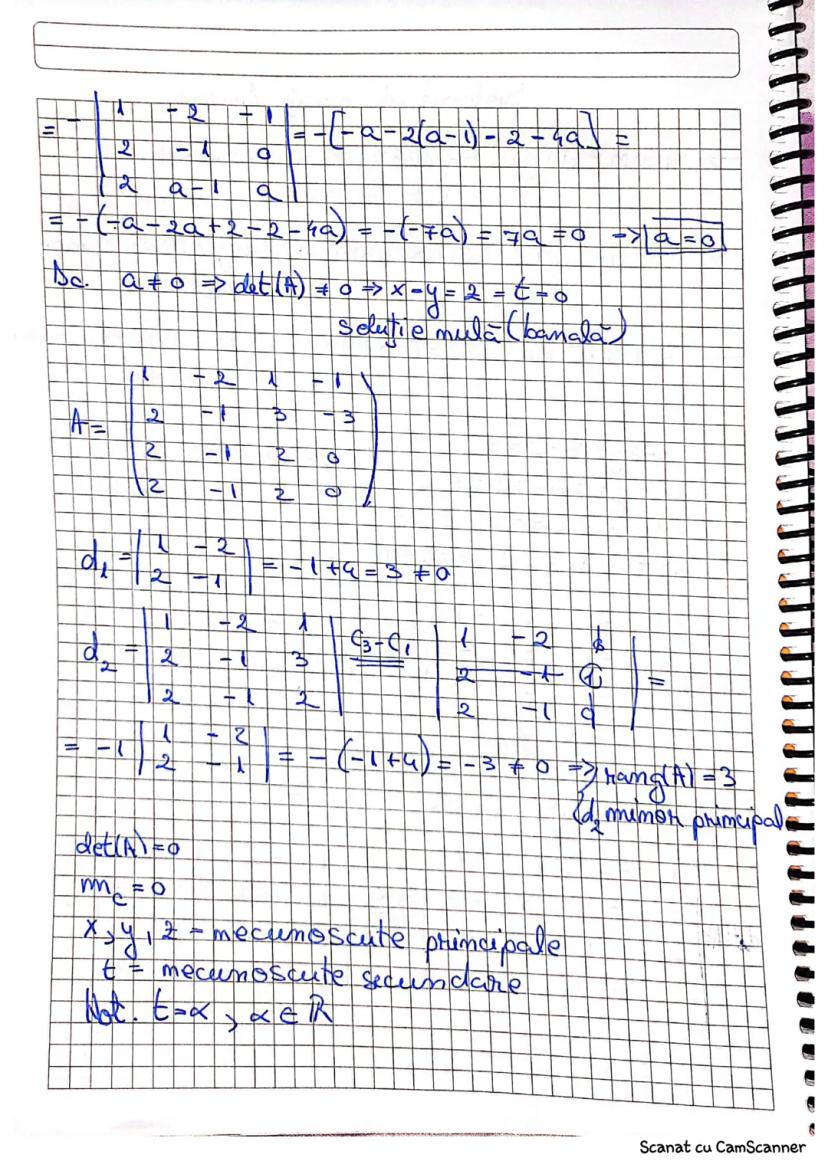 = - | 1 -2 -1 |
| 2 -1 0 | = -[-a-2(a-1)-2-4a] =
| 2 a-1 a |
= -(-a-2a+2-2-4a) = -(-7a) = 7a = 0 => a=0
Dc. a≠0 => det(A) ≠ 0 => x-y=2=t=0
soluție nulă (banală)
A= ( 1 -2 1 -1 )
( 2 -1 3 -3 )
( 2 -1 2 0 )
( 2 -1 2 0 )
d1 = | 1 -2 |
| 2 -1 | = -1+4=3 ≠0
d2 = | 1 -2 1 | C3-C1 | 1 -2 0 |
| 2 -1 3 | | 2 -1 1 | =
| 2 -1 2 | | 2 -1 0 |
= -1 | 1 -2 |
| 2 -1 | = -(-1+4) = -3 ≠ 0 => rang(A) = 3
(d2 minor principal
det(A)=0
mc = 0
x, y, z - necunoscute principale
t = necunoscute secundare
Not. t=α, α∈ℝ
Scanat cu CamScanner